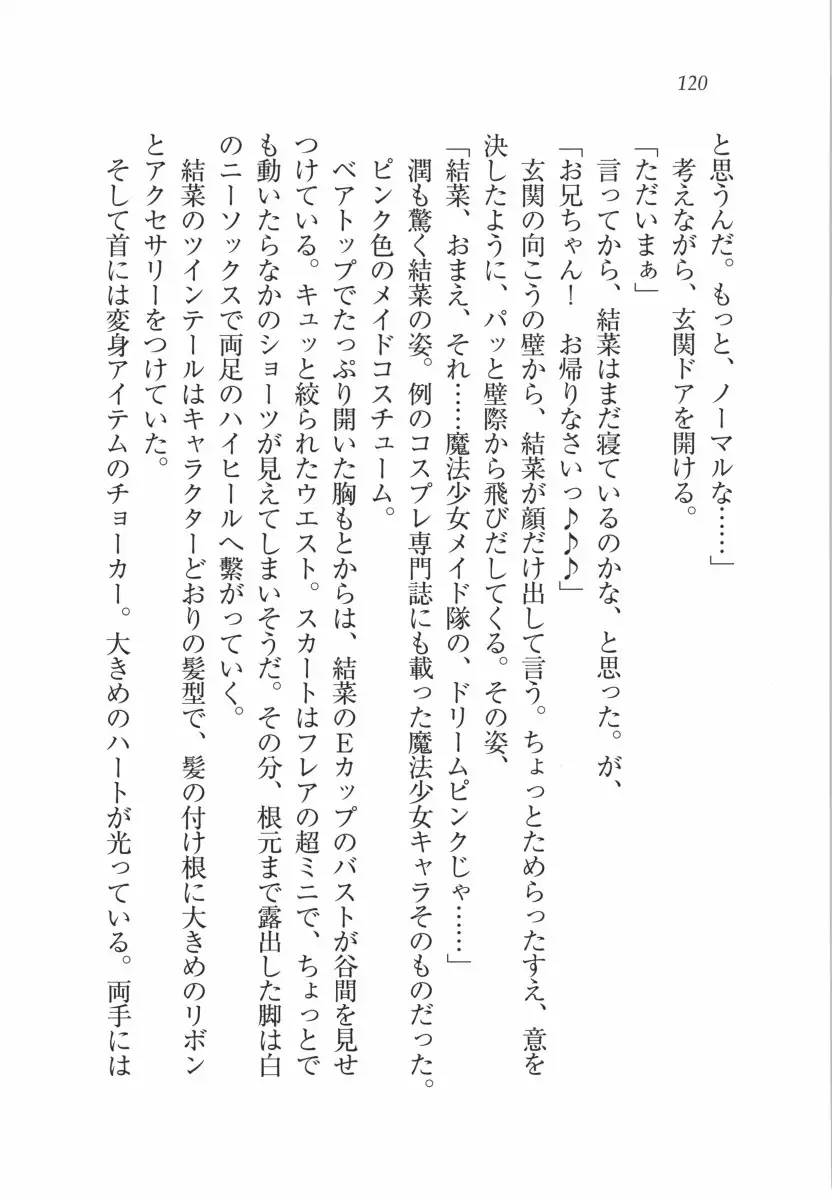 120
と思うんだ。もっと、ノーマルな……」
考えながら、玄関ドアを開ける。
「ただいまぁ」
言ってから、結菜はまだ寝ているのかな、と思った。が、
「お兄ちゃん！　お帰りなさいっ♪♪♪」
玄関の向こうの壁から、結菜が顔だけ出して言う。ちょっとためらったすえ、意を
決したように、パッと壁際から飛びだしてくる。その姿、
「結菜、おまえ、それ……魔法少女メイド隊の、ドリームピンクじゃ……」
潤も驚く結菜の姿。例のコスプレ専門誌にも載った魔法少女キャラそのものだった。
ピンク色のメイドコスチューム。
ベアトップでたっぷり開いた胸もとからは、結菜のＥカップのバストが谷間を見せ
つけている。キュッと絞られたウエスト。スカートはフレアの超ミニで、ちょっとで
も動いたらなかのショーツが見えてしまいそうだ。その分、根元まで露出した脚は白
のニーソックスで両足のハイヒールへ繋がっていく。
結菜のツインテールはキャラクターどおりの髪型で、髪の付け根に大きめのリボン
とアクセサリーをつけていた。
そして首には変身アイテムのチョーカー。大きめのハートが光っている。両手には